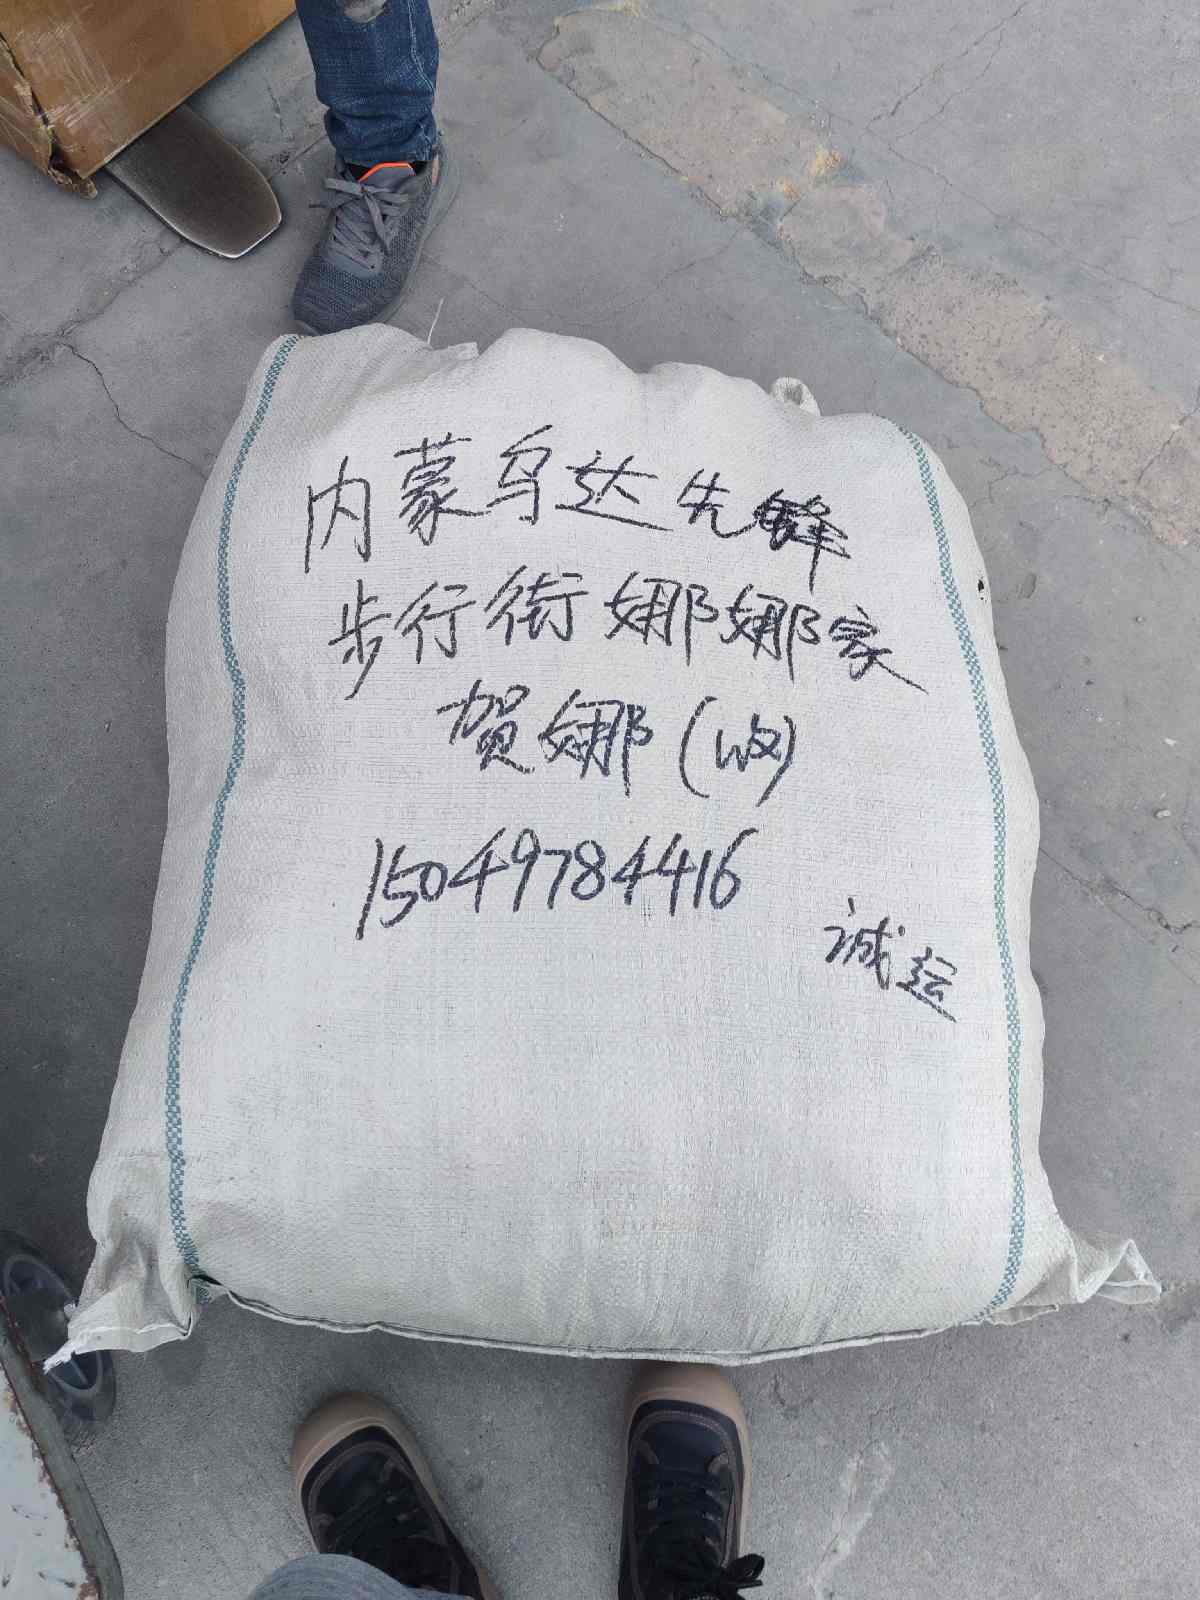 内蒙乌达先锋
步行街娜娜家
贺娜(收)
15049784416
诚运